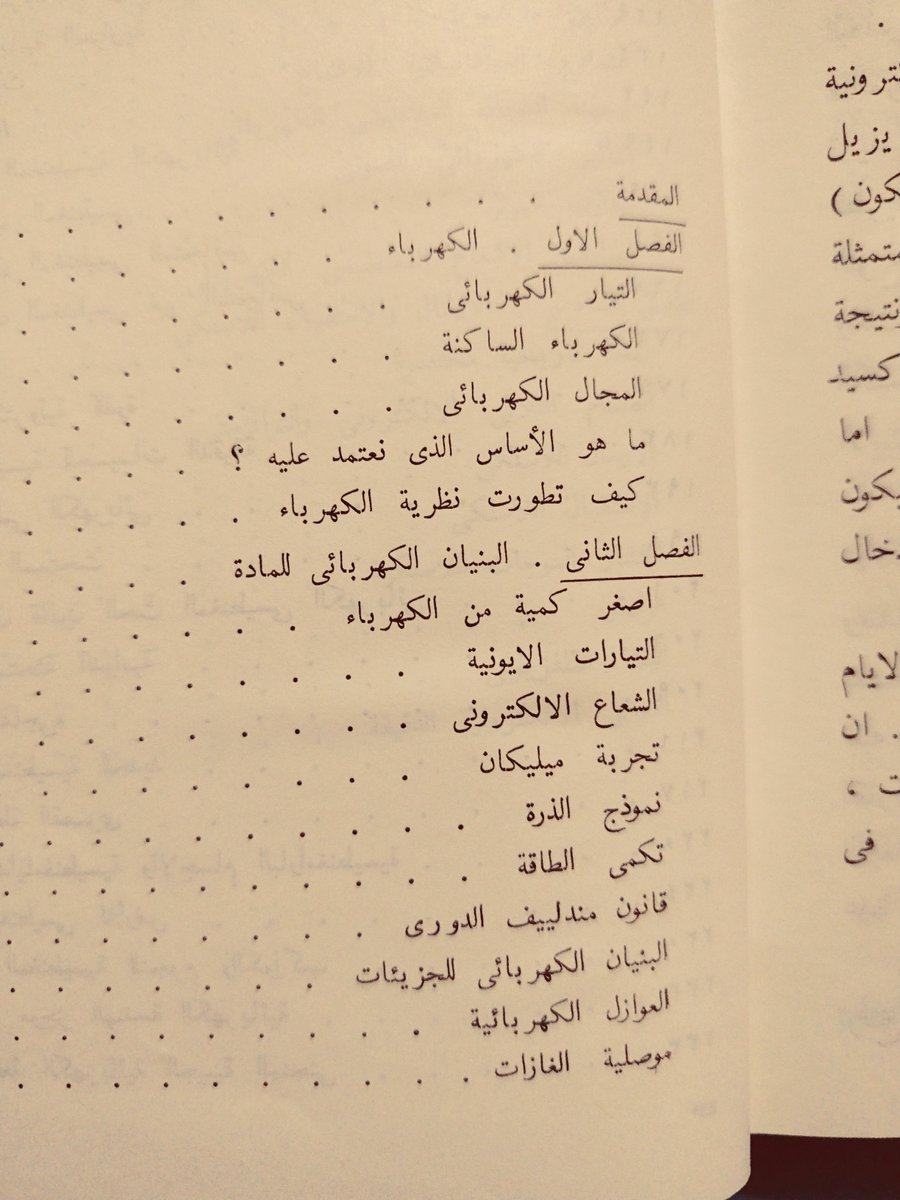 المقدمة . . . . . . . . . . .
الفصل الاول . الكهرباء . . . . . . . .
التيار الكهربائى . . . . . . . .
الكهرباء الساكنة . . . . . . . .
المجال الكهربائى . . . . . . . .
ما هو الأساس الذى نعتمد عليه ؟ . . . .
كيف تطورت نظرية الكهرباء . . . . .
الفصل الثانى . البنيان الكهربائى للمادة . . . .
اصغر كمية من الكهرباء . . . . . .
التيارات الايونية . . . . . . . .
الشعاع الالكترونى . . . . . . . .
تجربة ميليكان . . . . . . . .
نموذج الذرة . . . . . . . . . .
تكمى الطاقة . . . . . . . . . .
قانون مندلييف الدورى . . . . . . . .
البنيان الكهربائى للجزيئات . . . . . . .
العوازل الكهربائية . . . . . . . . .
موصلية الغازات . . . . . . . . . .
يزيل
متمثلة
ونتيجة
اما
الايام
. ان
فى